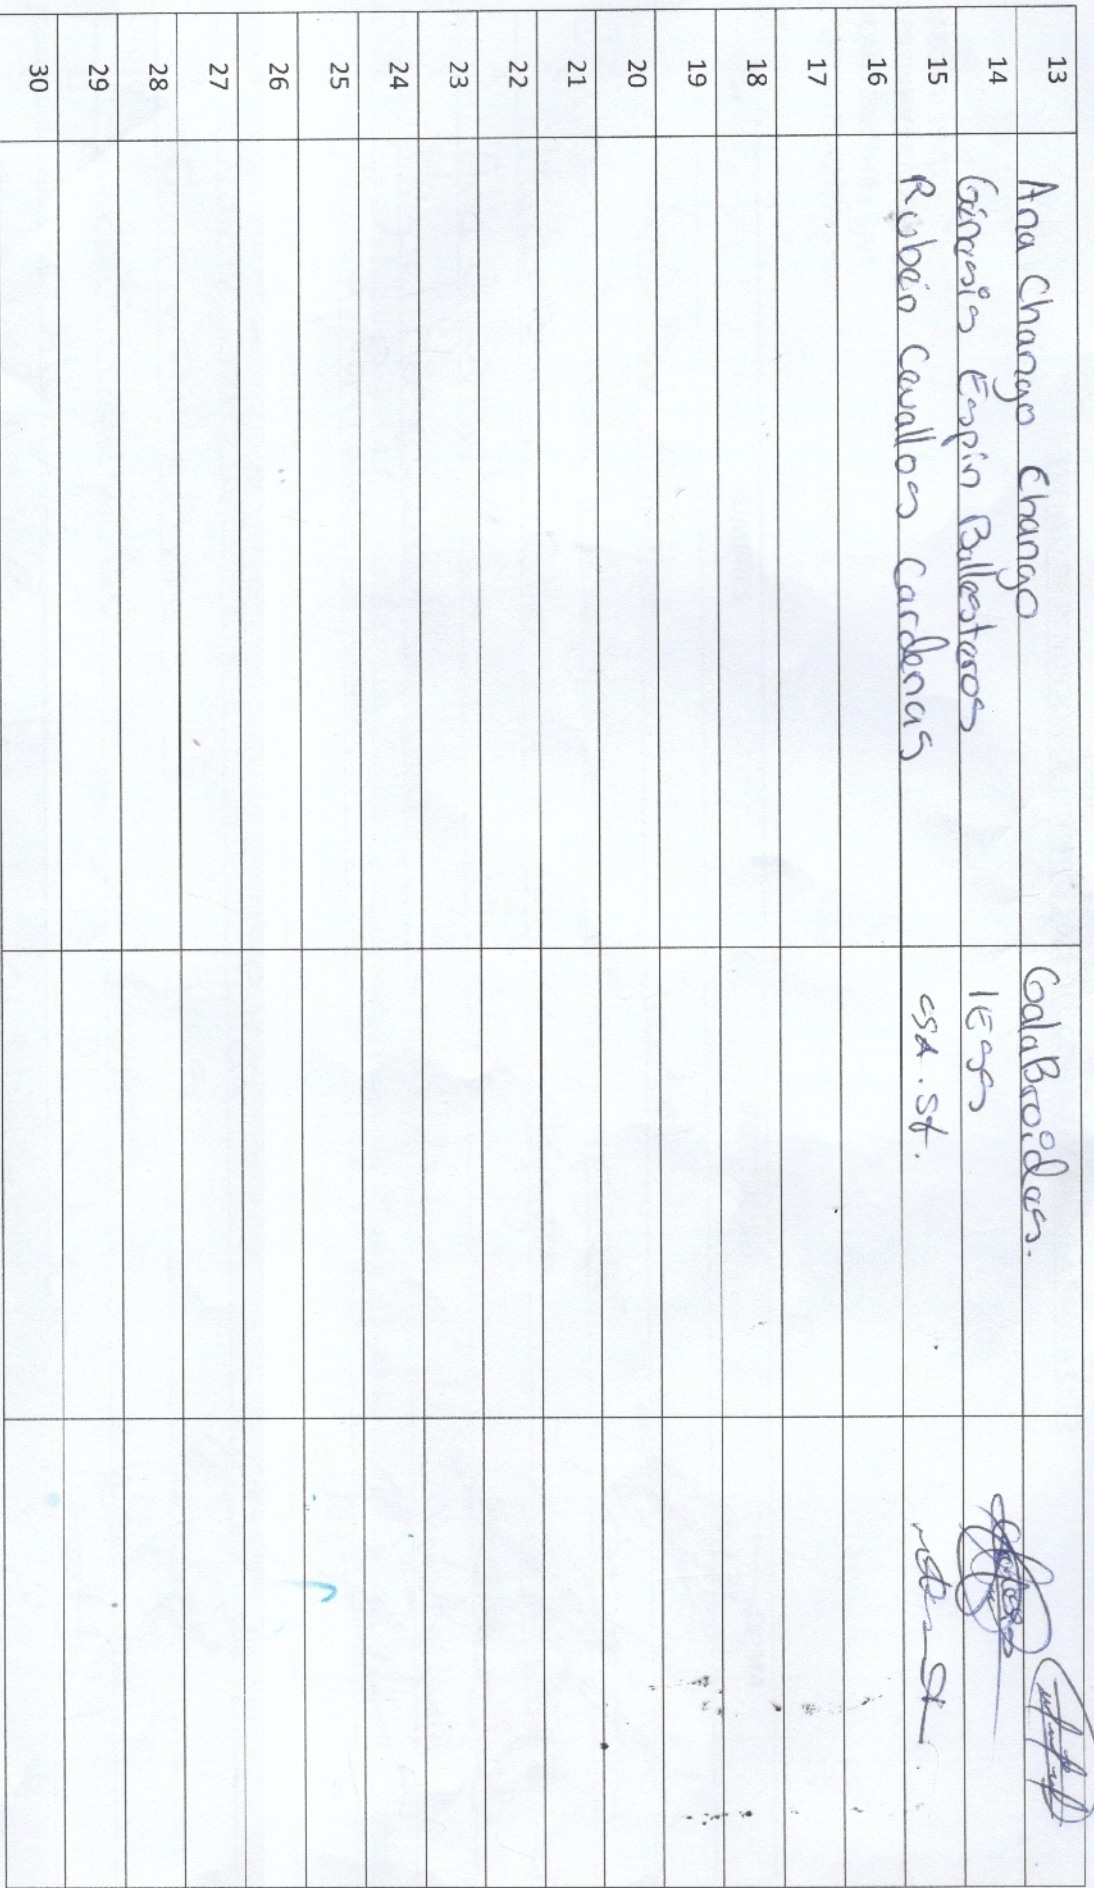 13 Ana Chango Chango GalaBroides.
14 Génesis Espin Ballesteros IESS
15 Rubén Cevallos Cardenas CSA.SA.
16
17
18
19
20
21
22
23
24
25
26
27
28
29
30